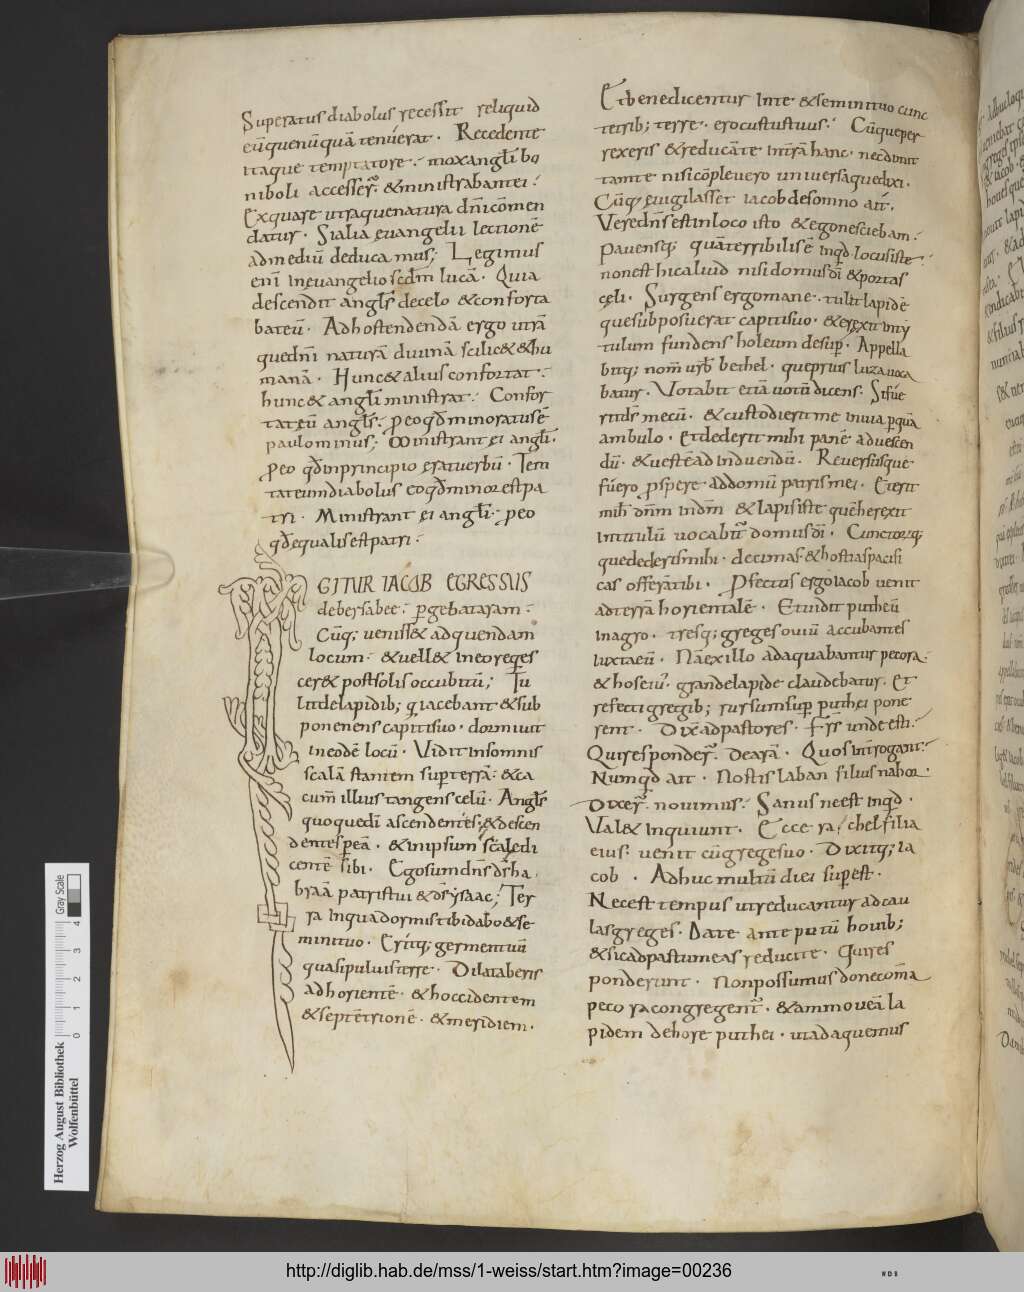 Superatus diabolus recessit reliquid
eūquenūquā tenuerat. Recedente
itaque temptatore. mox anglī bo
niboli accesser̄. & ministrabantei.
Ex qua re utraque natura dn̄i cōmen
datur. Si alia euangelii lectionē
ad mediū deducamus; Legimus
enī in euangelio scdm̄ lucā. Quia
descendit angls̄ de celo & conforta
bat eū. Ad hostendendā ergo utrā
quedn̄i naturā diuinā scilic& & hu
manā. Hunc & alius confortat.
hunc & anglī ministrat. Confor
tat eū angls̄. p̄eo qd̄ minoratus ē
paulominus; Ministrant ei anglī.
p̄eo qd̄ in principio erat uerbū. Tem
tat eum diabolus eo qd̄ minor est pa
tri. Ministrant ei anglī. p̄eo
qd̄ equalis est patri.
IGITUR IACOB EGRESSUS
de bersabee. p̄gebat aram.
Cūq; uenisset ad quendam
locum. & uell& in eo reqes
cer& post solis occubitū; Tu
lit de lapidib; q iacebant & sub
ponenens capiti suo. dormiuit
in eodē locū. Vidit in somnis
scalā stantem sup terrā. & ca
cum̄ illius tangens celū. Angls̄
quoque dī ascendentes & descen
dentes p eā. & in ipsum scale di
centē sibi. Ego sum dn̄s ds̄ ha
braā patris tui & ds̄ ysaac; Ter
ra in qua dormis tibi dabo & se
mini tuo. Eritq; germen tuū
quasi puluis terre. Dilataberis
ad horientē. & hoccidentem
& septētrionē. & meridiem.
Et benedicentur in te & semini tuo cunc
te trib; terre. ero custus tuus. Cūque per
rexeris & reducā te in trā hanc. nec dimit
tam te nisi cōpleuero uniuersa que dixi.
Cūq; euigilass& iacob de somno ait.
Vere dn̄s est in loco isto & ego nesciebam.
Pauensq; quā terribilis ē inqd locus iste.
non est hic aliud nisi domus dī & porta
celi. Surgens ergo mane. tulit lapidē
que subposuerat capiti suo. & erexit in ti
tulum fundens holeum desup. Appella
bitq; nom̄ urb̄ bethel. que prius luza uoca
batur. Votabit etiā uotū dicens. Si fue
rit ds̄ mecū. & custodierit me in uia p quā
ambulo. Et dederit mihi panē ad uescen
dū. & uestē ad induendū. Reuersusque
fuero p̄spere ad domū patris mei. Et erit
mih dn̄m in dm̄ & lapis iste quē herexit
in titulū uocabit̄ domus dī. Cunctorq;
que dederis mihi. decimas & hostias pacifi
cas offerā tibi. P̄fectus ergo iacob uenit
ad terrā horientalē. Et uidit puteū
in agro. tresq; greges ouiū accubantes
iuxta eū. Nā ex illo adaquabantur pecora.
& hos eiū. grande lapide claudebatur. Et
refecti gregib; rursum sup puthei ponē
rent. Dix̄ ad pastores. Frs̄ unde estī.
Qui responder̄. De arā. Quos intrrogant.
Numqd ait. Nostis laban filius nahor.
Dixer̄. nouimus. Sanus ne est inqd.
Val& inquiunt. Ecce rachel filia
eius. uenit cū grege suo. Dixitq; ia
cob. Adhuc multū diei sup est.
Nec est tempus ut reducantur ad cau
las greges. Date ante putū houib;
& sic ad pastum eas reducite. Qui res
ponderunt. Non possumus donec om̄a
pecora congregent̄. & ammoueā la
pidem de hore puthei. ut adaquemus
Herzog August Bibliothek
Wolfenbüttel
Gray Scale
0 1 2 3 4
http://diglib.hab.de/mss/1-weiss/start.htm?image=00236